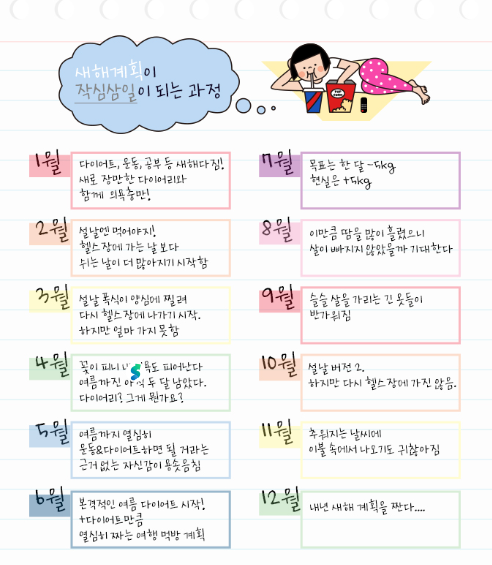 새해계획이
작심삼일이 되는 과정
1월
다이어트, 운동, 공부 등 새해다짐!
새로 장만한 다이어리와
함께 의욕충만!
2월
설날엔 먹어야지!
헬스장에 가는 날보다
쉬는 날이 더 많아지기 시작함
3월
설날 폭식이 양심에 찔려
다시 헬스장에 나가기 시작.
하지만 얼마 가지 못함
4월
꽃이 피니 욕도 피어난다
여름까진 두 달 남았다.
다이어리? 그게 뭔가요?
5월
여름까지 열심히
운동&다이어트하면 될 거라는
근거 없는 자신감이 용솟음침
6월
본격적인 여름 다이어트 시작!
+다이어트만큼
열심히 짜는 여행 먹방 계획
7월
목표는 한 달 -5kg
현실은 +5kg
8월
이만큼 땀을 많이 흘렸으니
살이 빠지지 않았을까 기대한다
9월
슬슬 살을 가리는 긴 옷들이
반가워짐
10월
설날 버전 2.
하지만 다시 헬스장에 가진 않음.
11월
추워지는 날씨에
이불 속에서 나오기도 귀찮아짐
12월
내년 새해 계획을 짠다....